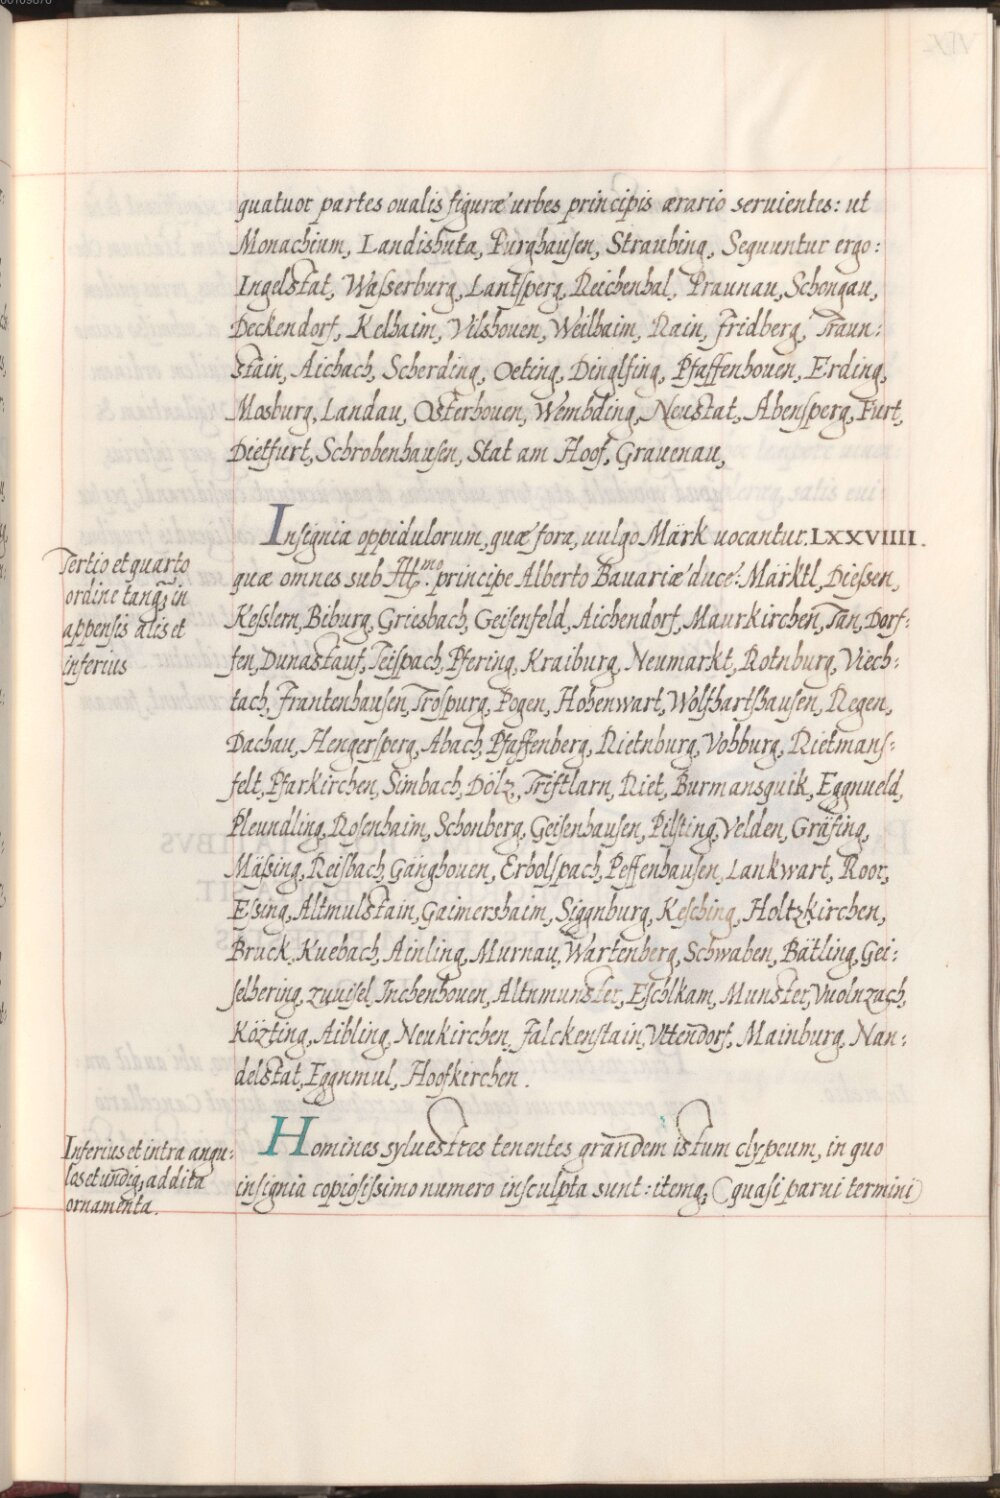 quatuor partes oualis figuræ urbes principis ærario seruientes: ut
Monachium, Landishuta, Purghausen, Straubing, Sequuntur ergo:
Ingelstat, Wasserburg, Lantsperg, Reichenhal, Praunau, Schongau,
Deckendorf, Kelhaim, Vilshouen, Weilhaim, Rain, Fridberg, Traun:
stain, Aicbach, Scherding, Oeting, Dinglfing, Pfaffenhouen, Erding,
Mosburg, Landau, Osterhouen, Wembding, Neustat, Abensperg, Furt,
Dietfurt, Schrobenhausen, Stat am Hoof, Grauenau,
Insignia oppidulorum, quæ fora, uulgo Märk uocantur. LXXVIIII.
Tertio et quarto
ordine tanq̃ in
appensis alis et
inferius
quæ omnes sub principe Alberto Bauariæ duce: Märktl, Diessen,
Kesslern, Biburg, Griesbach, Geisenfeld, Aichendorf, Maurkirchen, Tan, Dorf:
fen, Dunastauf, Teispach, Pfering, Kraiburg, Neumarkt, Rotnburg, Viech:
tach, Frantenhausen, Trospurg, Pogen, Hohenwart, Wolfhartshausen, Regen,
Dachau, Hengersperg, Abach, Pfaffenberg, Rietnburg, Vohburg, Rietmans:
felt, Pfarkirchen, Simbach, Dölz, Triftlarn, Riet, Burmansquik, Eggnueld,
Pleundling, Rosenhaim, Schonberg, Geisenhausen, Pilsting, Velden, Gräfing,
Mäsing, Reisbach, Gänghouen, Erbolspach, Peffenhausen, Lankwart, Roor,
Essing, Altmulstain, Gaimershaim, Siggnburg, Kesching, Holtzkirchen,
Bruck, Kuebach, Ainling, Murnau, Wartenberg, Schwaben, Bätling, Gei:
selhering, zuuisel, Inchenhouen, Altnmunster, Eschlkam, Munster, Vuolnzach,
Közting, Aibling, Neukirchen, Falckenstain, Vttendorf, Mainburg, Nan:
delstat, Eggnmul, Hoofkirchen.
Inferius et intra angu:
los et undiq; addita
ornamenta.
Homines syluestres tenentes grandem istum clypeum, in quo
insignia copiosissimo numero insculpta sunt: itemq; (quasi parui termini)